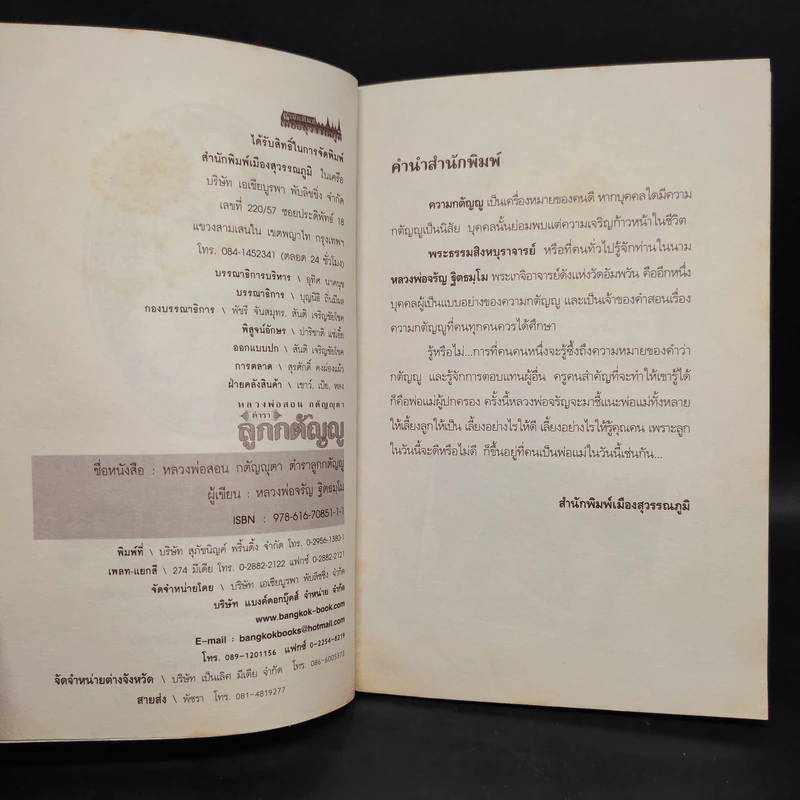 เมืองสุวรรณภูมิ
ได้รับสิทธิ์ในการจัดพิมพ์
สำนักพิมพ์เมืองสุวรรณภูมิ ในเครือ
บริษัท เอเชียบูรพา พับลิชชิ่ง จำกัด
เลขที่ 220/57 ซอยประดิพัทธ์ 18
แขวงสามเสนใน เขตพญาไท กรุงเทพฯ
โทร. 084-1452341 (ตลอด 24 ชั่วโมง)
บรรณาธิการบริหาร \ อุทิศ นาคนุช
บรรณาธิการ \ บุญนิธิ ถิ่นมีผล
กองบรรณาธิการ \ พัชรี จันสมุทร. สันติ เจริญชัยโชค
พิสูจน์อักษร \ ปาริชาติ แซ่เอี้ย
ออกแบบปก \ สันติ เจริญชัยโชค
การตลาด \ สุรศักดิ์ คงผ่องแผ้ว
ฝ่ายคลังสินค้า \ เชาว์. เป๊ย. ทอง
หลวงพ่อสอน กตัญญุตา
ตำรา
ลูกกตัญญู
ชื่อหนังสือ : หลวงพ่อสอน กตัญญุตา ตำราลูกกตัญญู
ผู้เขียน : หลวงพ่อจรัญ ฐิตธมฺโม
ISBN : 978-616-70851-1-1
พิมพ์ที่ \ บริษัท สุภัชนิญค์ พริ้นติ้ง จำกัด โทร. 0-2956-1383-1
เพลท-แยกสี \ 274 มีเดีย โทร. 0-2882-2122 แฟกซ์ 0-2882-2121
จัดจำหน่ายโดย \ บริษัท เอเชียบูรพา พับลิชชิ่ง จำกัด
บริษัท แบงค์คอกบุ๊คส์ จำหน่าย จำกัด
www.bangkok-book.com
E-mail : bangkokbooks@hotmail.com
โทร. 089-1201156 แฟกซ์ 0-2254-8219
จัดจำหน่ายต่างจังหวัด \ บริษัท เป็นเลิศ มีเดีย จำกัด โทร. 086-6005371
สายส่ง \ พัชรา โทร. 081-4819277
คำนำสำนักพิมพ์
ความกตัญญู เป็นเครื่องหมายของคนดี หากบุคคลใดมีความ
กตัญญูเป็นนิสัย บุคคลนั้นย่อมพบแต่ความเจริญก้าวหน้าในชีวิต
พระธรรมสิงหบุราจารย์ หรือที่คนทั่วไปรู้จักท่านในนาม
หลวงพ่อจรัญ ฐิตธมฺโม พระเกจิอาจารย์ดังแห่งวัดอัมพวัน คืออีกหนึ่ง
บุคคลผู้เป็นแบบอย่างของความกตัญญู และเป็นเจ้าของคำสอนเรื่อง
ความกตัญญูที่คนทุกคนควรได้ศึกษา
รู้หรือไม่...การที่คนคนหนึ่งจะรู้ซึ้งถึงความหมายของคำว่า
กตัญญู และรู้จักการตอบแทนผู้อื่น ครูคนสำคัญที่จะทำให้เขารู้ได้
ก็คือพ่อแม่ผู้ปกครอง ครั้งนี้หลวงพ่อจรัญจะมาชี้แนะพ่อแม่ทั้งหลาย
ให้เลี้ยงลูกให้เป็น เลี้ยงอย่างไรให้ดี เลี้ยงอย่างไรให้รู้คุณคน เพราะลูก
ในวันนี้จะดีหรือไม่ดี ก็ขึ้นอยู่ที่คนเป็นพ่อแม่ในวันนี้เช่นกัน...
สำนักพิมพ์เมืองสุวรรณภูมิ